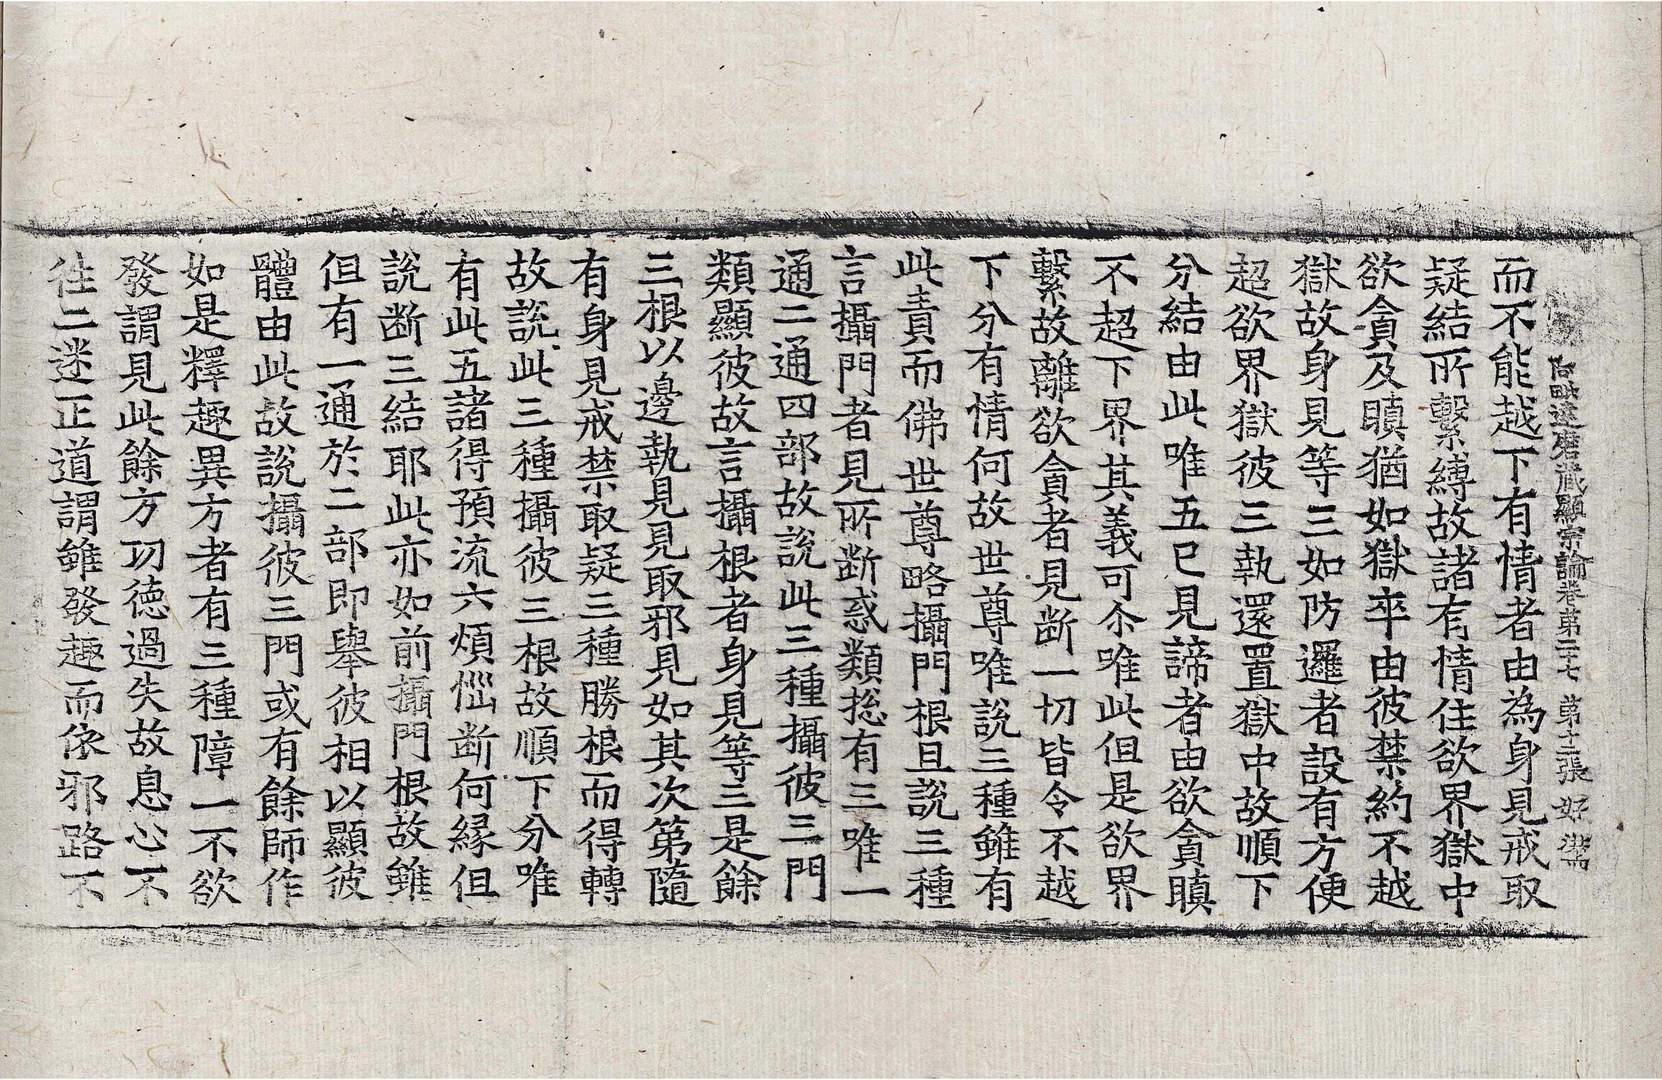 阿毗達磨藏顯宗論卷第二十七 第十張 好
而不能越下有情者由為身見戒取
疑結所繫縛故諸有情住欲界獄中
欲貪及瞋猶如獄卒由彼禁約不越
獄故身見等三如防邏者設有方便
超欲界獄彼三執還置獄中故順下
分結由此唯五已見諦者由欲貪瞋
不超下界其義可尒唯此但是欲界
繫故離欲貪者見断一切皆令不越
下分有情何故世尊唯說三種雖有
此責而佛世尊略攝門根且說三種
言攝門者見所断惑類惣有三唯一
通二通四部故說此三種攝彼三門
類顯彼故言攝根者身見等三是餘
三根以邊執見見取邪見如其次第隨
有身見戒禁取疑三種勝根而得轉
故說此三種攝彼三根故順下分唯
有此五諸得預流六煩惱断何緣但
說断三結耶此亦如前攝門根故雖
但有一通於二部即舉彼相以顯彼
體由此故說攝彼三門或有餘師作
如是釋趣異方者有三種障一不欲
發謂見此餘方功德過失故息心不
徃二迷正道謂雖發趣而依邪路不